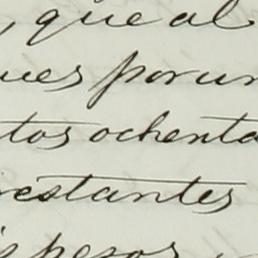 , que al
ues por un
tos ochenta
restantes
s pesos,